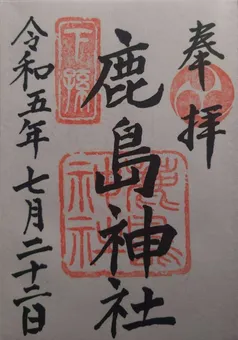 奉拝
鹿島神社
下総
鹿島
神社
令和五年七月二十二日